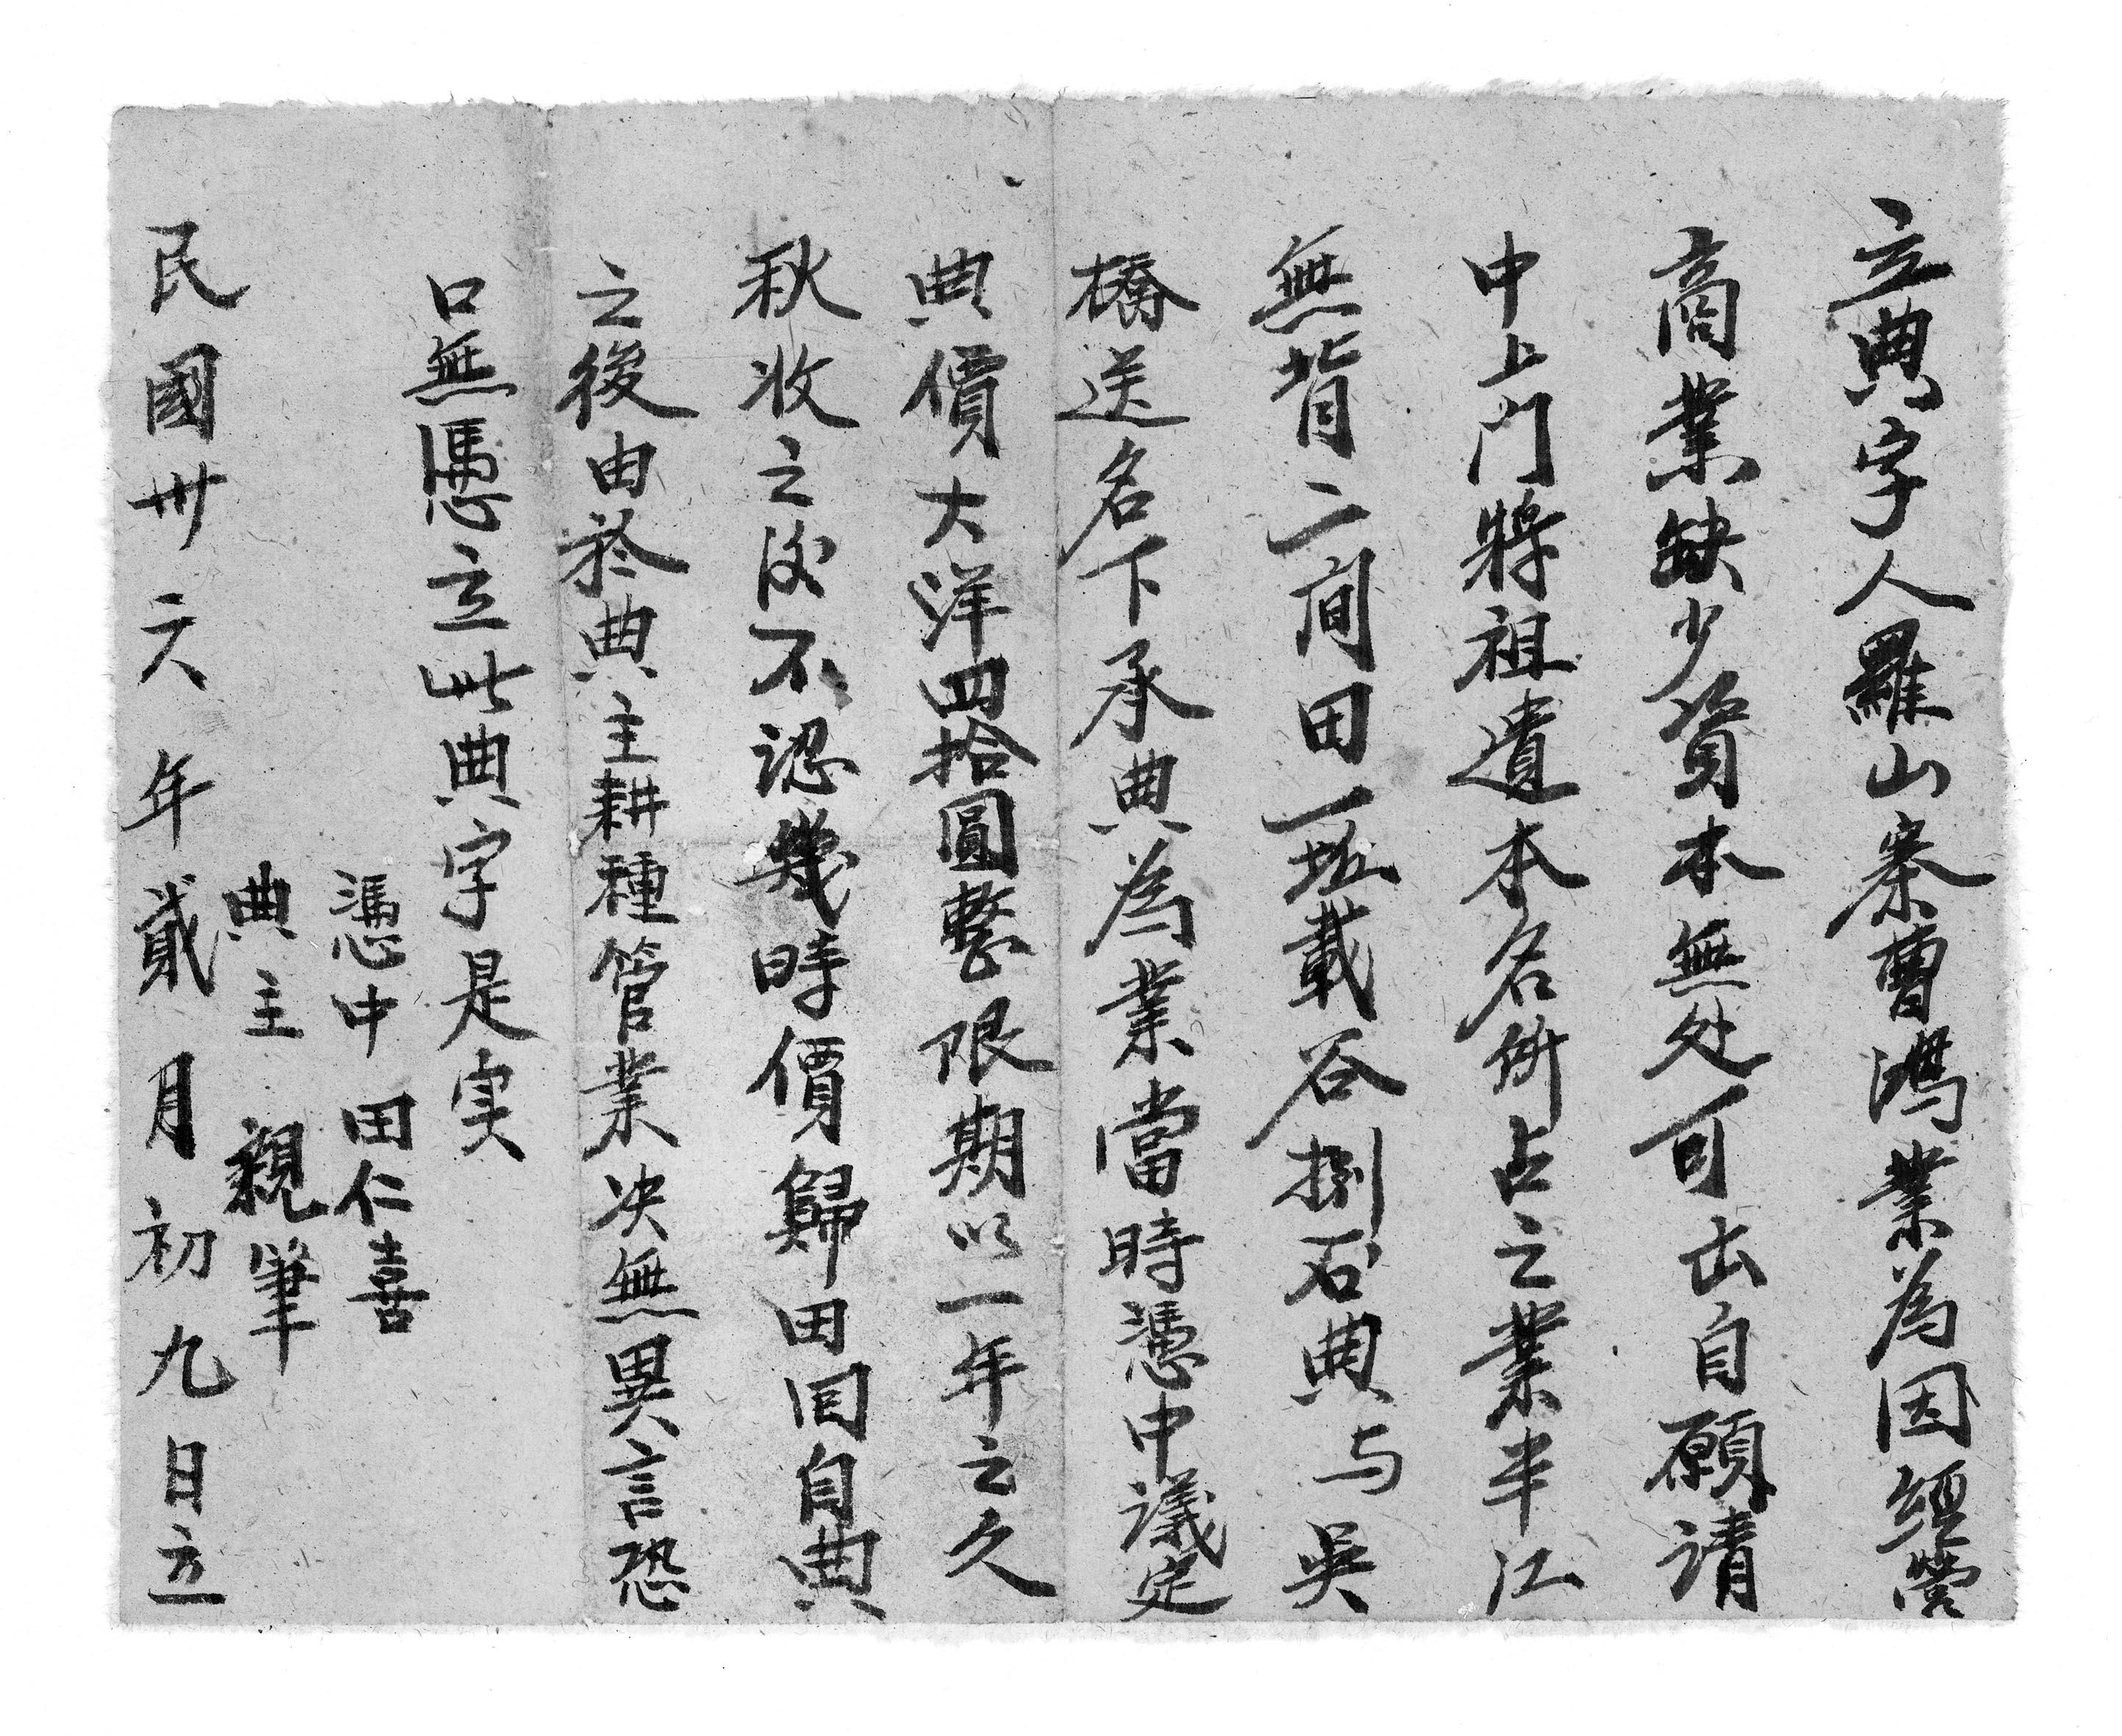 立典字人羅山寨曹鴻業為因經營
商業缺少資本無处可出自願請
中上门將祖遺本名所占之業半江
無背二间田一坵載谷捌石典与吳
橋送名下承典為業當時憑中議定
典價大洋四拾圓整限期以一年之久
秋收之後不認幾時價歸田回自典
之後由於典主耕種管業决無異言恐
口無憑立此典字是实
憑中 田仁喜
典主 親筆
民國卅六年貳月初九日立